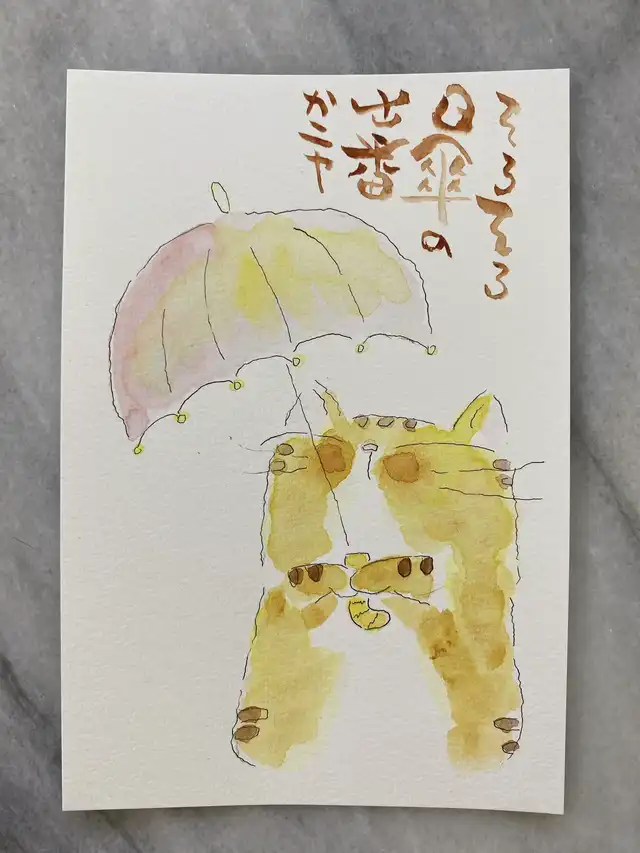 そろそろ
日傘の
出番
かニャ